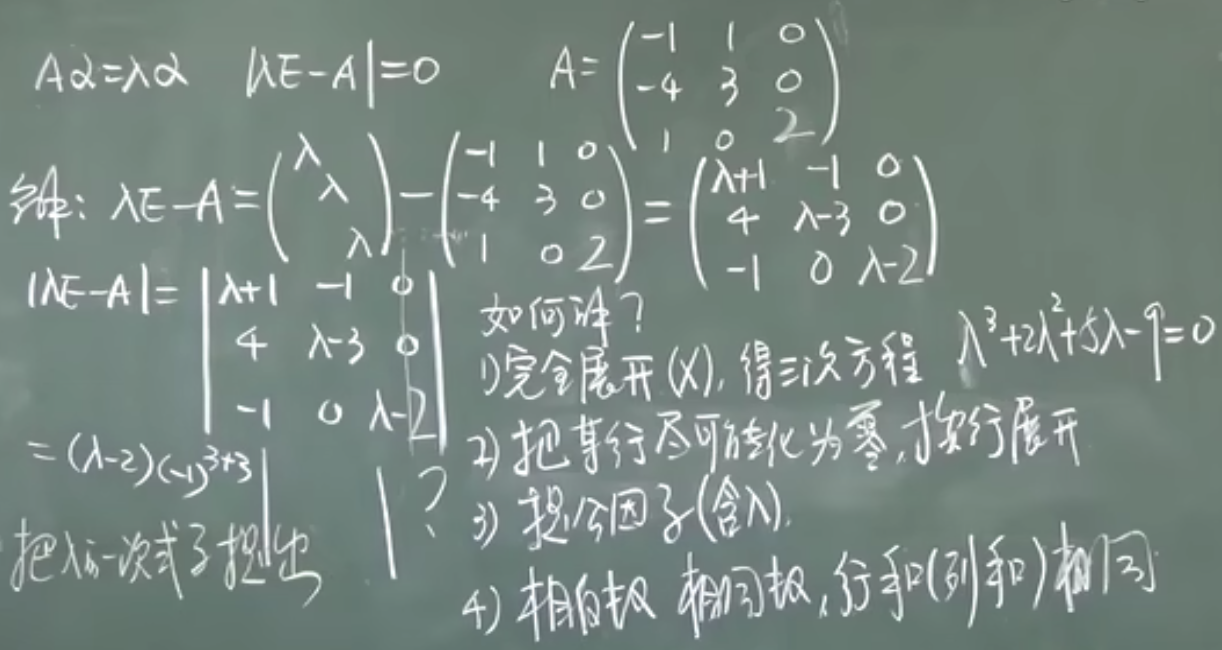 Aα=λα |λE-A|=0 A=(-1 1 0
-4 3 0
1 0 2)
解: λE-A=(λ
λ
λ)-(-1 1 0
-4 3 0
1 0 2)=(λ+1 -1 0
4 λ-3 0
-1 0 λ-2)
|λE-A|=|λ+1 -1 0
4 λ-3 0
-1 0 λ-2|
=(λ-2)(-1)^{3+3}| |?
把λ的一次式子提出
如何解?
1)完全展开(X),得三次方程 λ³+2λ²+5λ-9=0
2)把某行尽可能化为零,按行展开
3)提公因子(含λ).
4)相同,行和(列和)相同